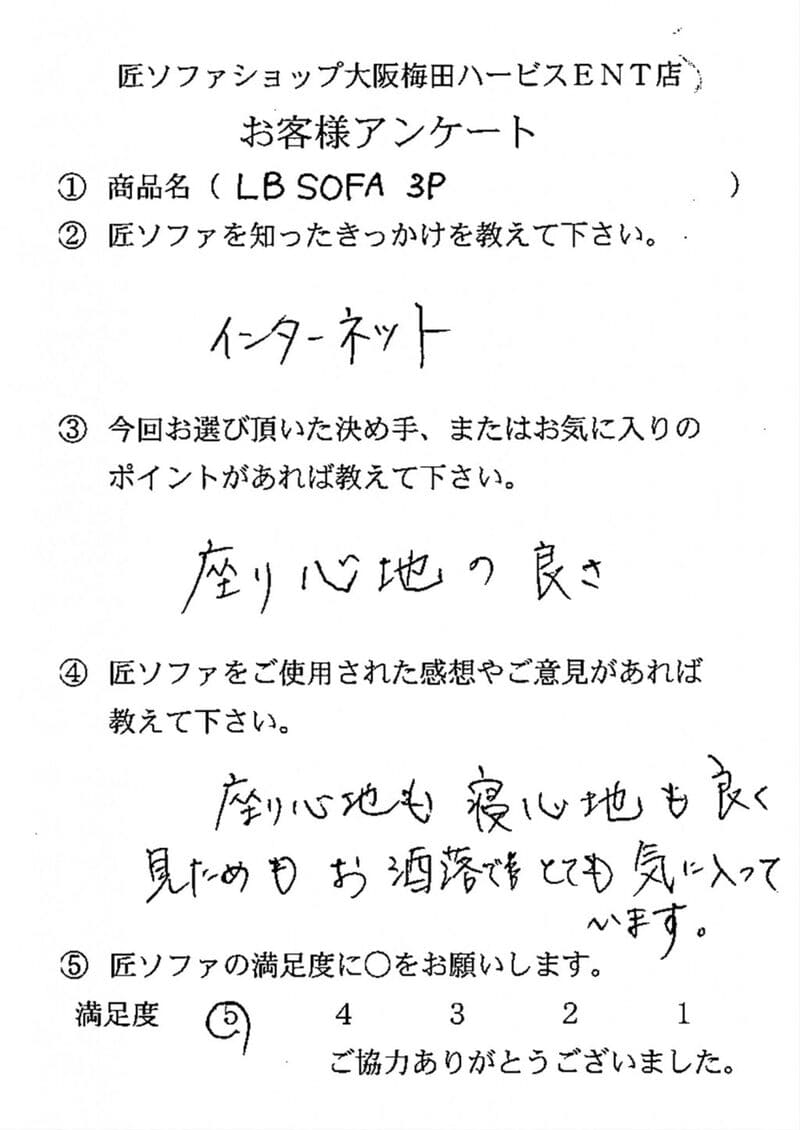 匠ソファショップ大阪梅田ハービスENT店
お客様アンケート
① 商品名（ LB SOFA 3P ）
② 匠ソファを知ったきっかけを教えて下さい。
インターネット
③ 今回お選び頂いた決め手、またはお気に入りの
ポイントがあれば教えて下さい。
座り心地の良さ
④ 匠ソファをご使用された感想やご意見があれば
教えて下さい。
座り心地も寝心地も良く
見ためもお洒落でとても気に入って
います。
⑤ 匠ソファの満足度に○をお願いします。
満足度 5 4 3 2 1
ご協力ありがとうございました。